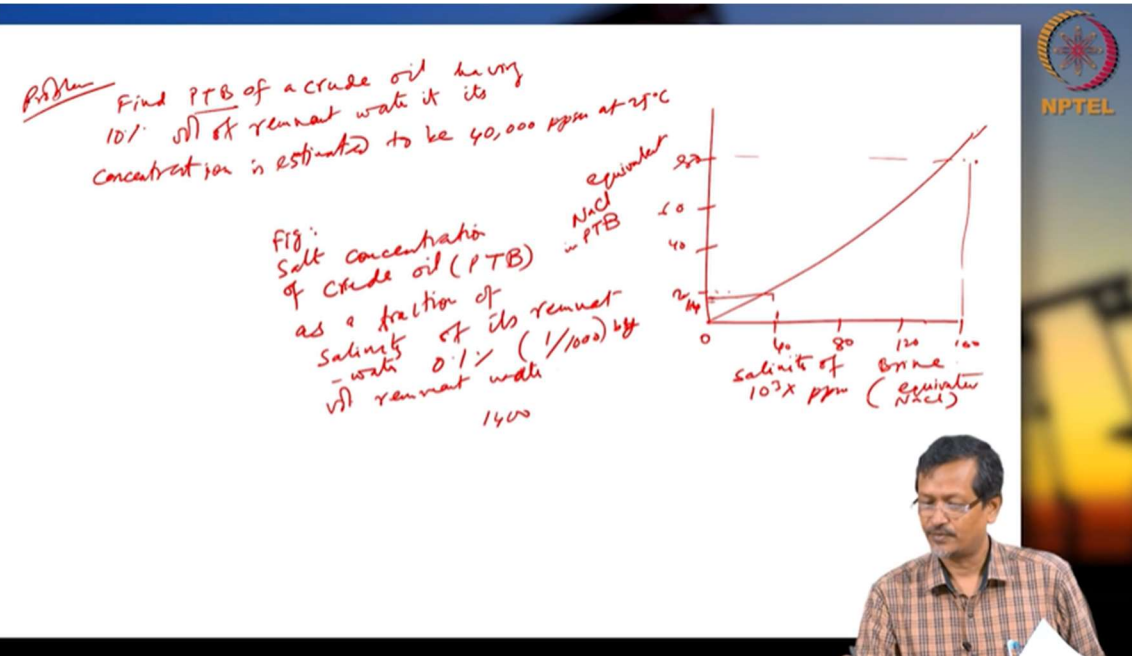 Problem
Find PTB of a crude oil having
10% vol of remnant wate if its
concentration is estimated to be 40,000 ppm at 25°C
Fig:
Salt concentration
of crude oil (PTB)
as a fraction of
salinity of its remnat
-wate 0.1% (1/1000) by
vol remnant wate
1400
equivalent
NaCl
in PTB
80
60
40
20
14
0
40
80
120
160
salinity of Brine
10³x ppm (equivalen
NaCl)
NPTEL